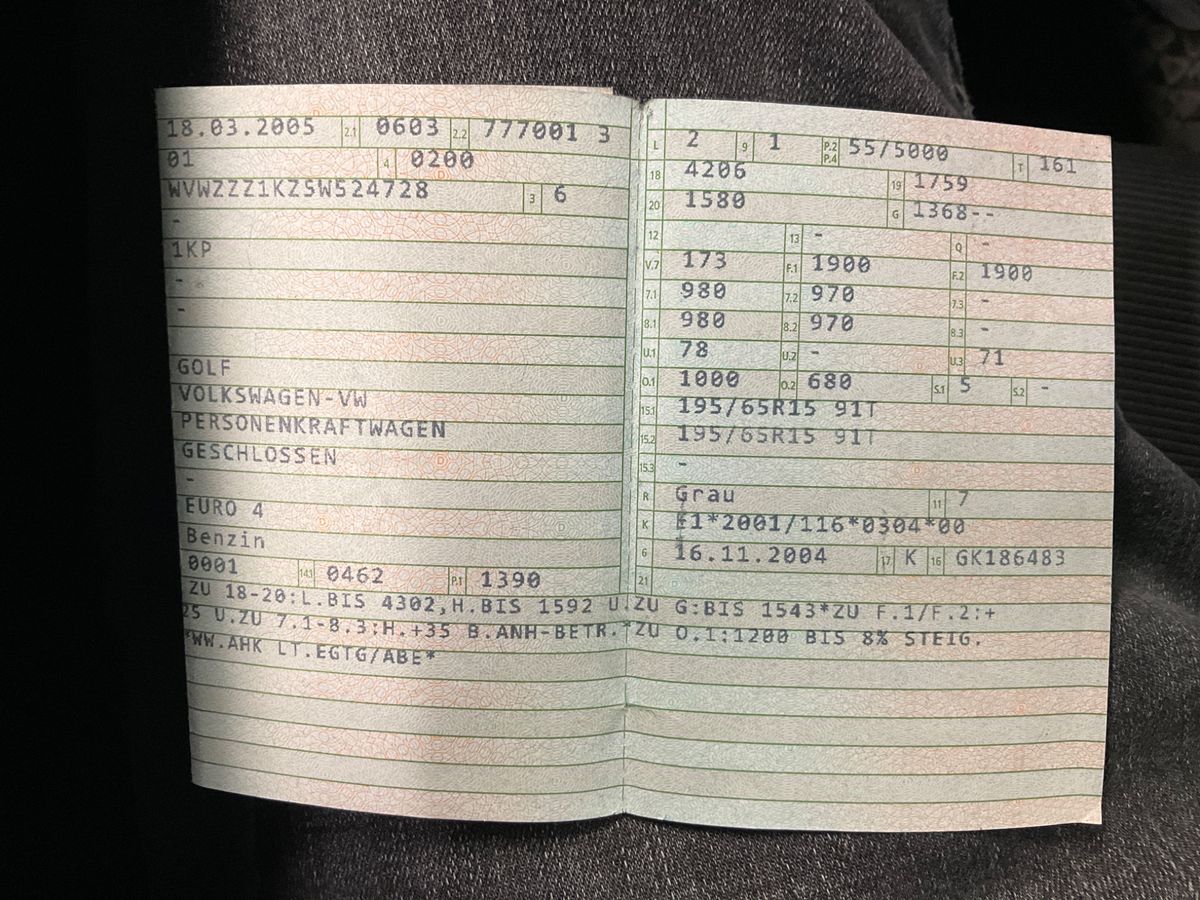 18.03.2005 2.1 0603 2.2 777001 3
01 4 0200
WVWZZZ1KZSW524728 3 6
-
1KP
-
-
-
GOLF
VOLKSWAGEN-VW
PERSONENKRAFTWAGEN
GESCHLOSSEN
-
EURO 4
Benzin
0001 14.1 0462 P.1 1390
L 2 9 1 P.2 P.4 55/5000 T 161
18 4206 19 1759
20 1580 G 1368--
12 13 - Q -
V.7 173 F.1 1900 F.2 1900
7.1 980 7.2 970 7.3 -
8.1 980 8.2 970 8.3 -
U.1 78 U.2 - U.3 71
O.1 1000 O.2 680 S.1 5 S.2 -
15.1 195/65R15 91T
15.2 195/65R15 91T
15.3 -
R Grau 11 7
K E1*2001/116*0304*00
6 16.11.2004 17 K 16 GK186483
21
ZU 18-20:L.BIS 4302,H.BIS 1592 U.ZU G:BIS 1543*ZU F.1/F.2:+
25 U.ZU 7.1-8.3:H.+35 B.ANH-BETR.*ZU O.1:1200 BIS 8% STEIG.
*WW.AHK LT.EGTG/ABE*